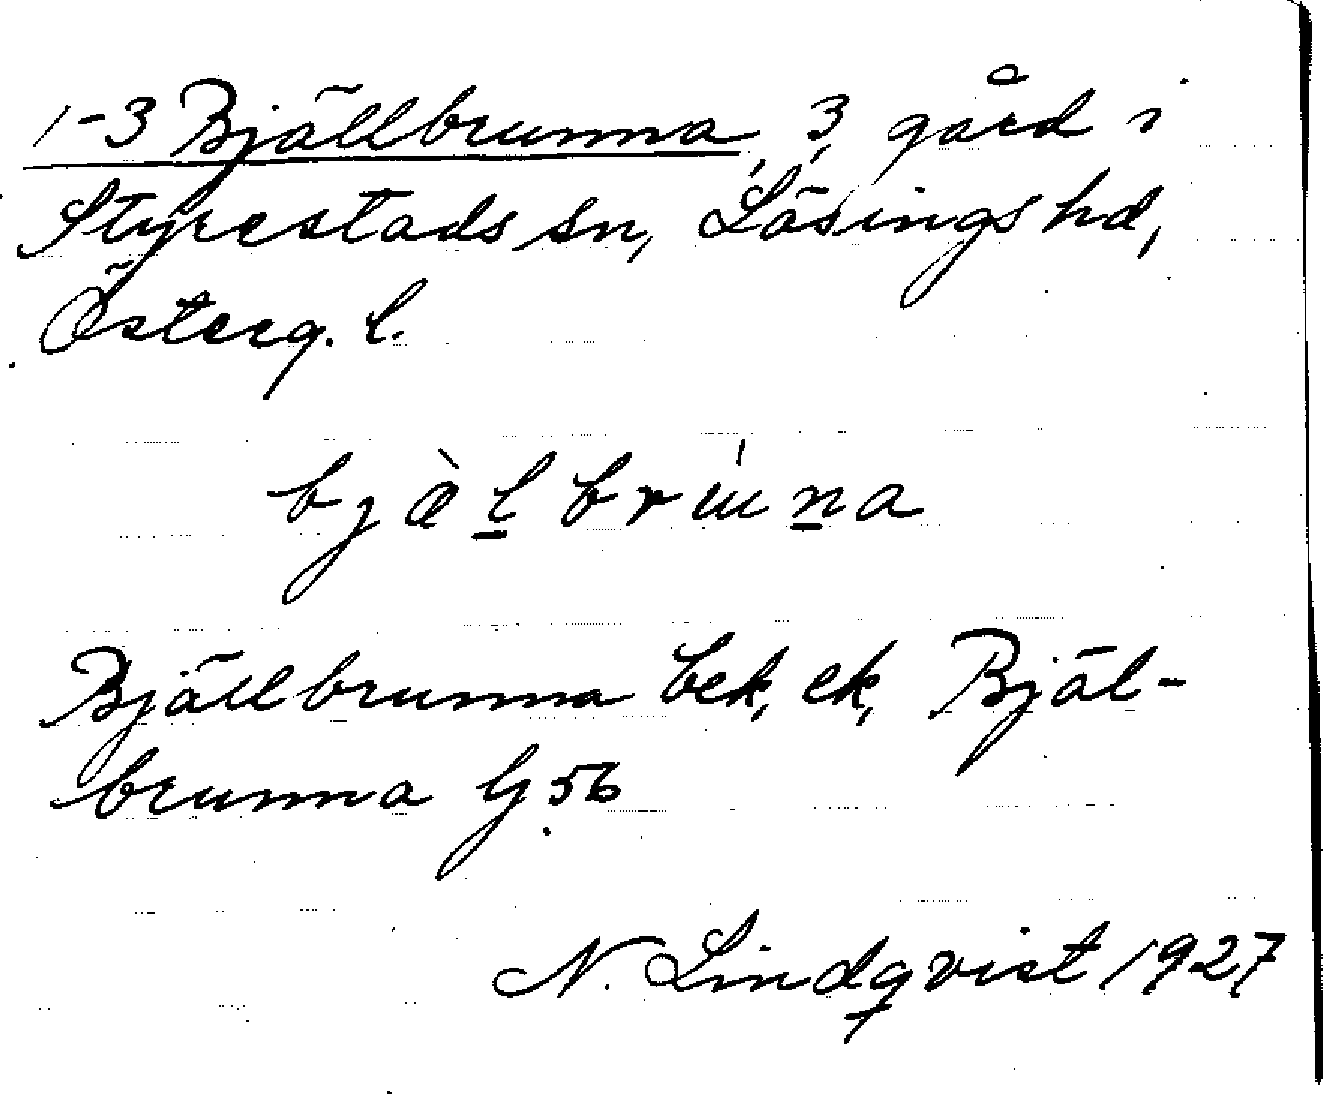 1-3 Bjällbrunna, 3, gård i
Styrestads sn, Lösings hd,
Österg. l.
bjæ̀l̠brún̠a
Bjällbrunna bek, ek, Bjäl-
brunna G 56
N. Lindqvist 1927